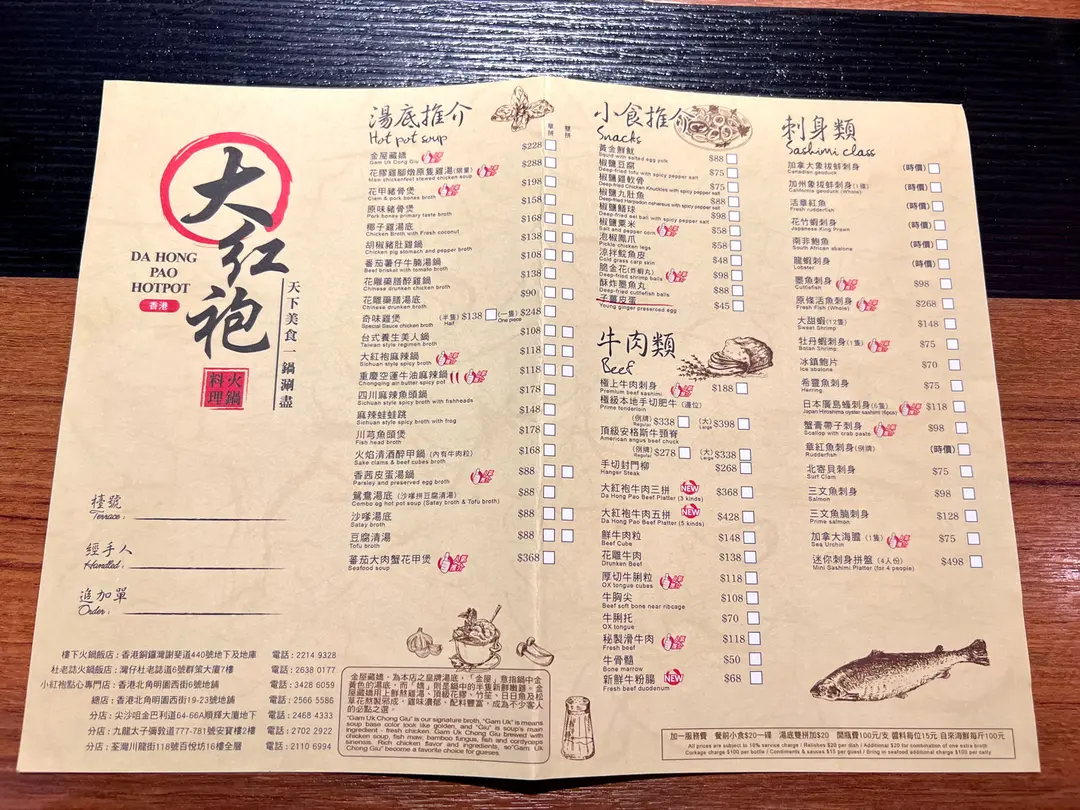 大红袍
DA HONG
PAO
HOTPOT
香港
天下美食一鍋涮盡
火鍋
料理
檯號
Terrace :
經手人
Handled :
追加單
Order :
樓下火鍋飯店 : 香港銅鑼灣謝斐道440號地下及地庫 電話 : 2214 9328
杜老誌火鍋飯店 : 灣仔杜老誌道6號群策大廈7樓 電話 : 2638 0177
小紅袍點心專門店 : 香港北角明園西街6號地舖 電話 : 3428 6059
總店 : 香港北角明園西街19-23號地舖 電話 : 2566 5586
分店 : 尖沙咀金巴利道64-66A順輝大廈地下 電話 : 2468 4333
分店 : 九龍太子彌敦道777-781號安寶樓2樓 電話 : 2702 2922
分店 : 荃灣川龍街118號百悅坊16樓全層 電話 : 2110 6994
湯底推介
Hot pot soup
單拼 雙拼
金屋藏嬌 $228
Gam Uk Cong Giu
花膠雞腳燉原隻雞湯(限量) $288
Maw chickenfeet stewed chicken soup
花甲豬骨煲 $198
Clam & pork bones broth
原味豬骨煲 $158
Pork bones primary taste broth
椰子雞湯底 $168
Chicken Broth with Fresh coconut
胡椒豬肚雞鍋 $138
Chicken pig stomach and pepper broth
番茄薯仔牛腩湯鍋 $108
Beef brisket with tomato broth
花雕藥膳醉雞鍋 $138
Chinese drunken chicken broth
花雕藥膳湯底 $90
Chinese drunken broth
奇味雞煲 (半隻) $138 (一隻) $248
Special Sauce chicken broth Half One piece
台式養生美人鍋 $108
Taiwan style regimen broth
大紅袍麻辣鍋 $118
Sichuan style spicy broth
重慶空運牛油麻辣鍋 $118
Chongqing air butter spicy pot
四川麻辣魚頭鍋 $178
Sichuan style spicy broth with fishheads
麻辣蛙蛙跳 $148
Sichuan style spicy broth with frog
川芎魚頭煲 $178
Fish head broth
火焰清酒醉甲鍋 (內有牛肉粒) $168
Sake clams & beef cubes broth
香茜皮蛋湯鍋 $88
Parsley and preserved egg broth
鴛鴦湯底 (沙嗲拼豆腐清湯) $88
Combo og hot pot soup (Satay broth & Tofu broth)
沙嗲湯底 $88
Satay broth
豆腐清湯 $88
Tofu broth
蕃茄大肉蟹花甲煲 $368
Seafood soup
金屋藏嬌，為本店之皇牌湯底，「金屋」意指鍋中金
黃色的湯底，而「嬌」則是鍋中的半隻新鮮嫩雞。金
屋藏嬌用上鮮熬雞湯、頂級花膠、竹笙、日日魚及松
草花熬製邪成，雞味濃郁、配料豐富，成為不少客人
的必點之選。
"Gam Uk Chong Giu" is our signature broth, "Gam Uk" is means
soup base color look like golden, and "Giu" is soup's main
Ingredient - fresh chicken. Gam Uk Chong Giu brewed with
chicken soup, fish maw, bamboo fungus, fish and cordyceps
sinensis. Rich chicken flavor and ingredients, so"Gam Uk
Chong Giu" become a favorite choice for guests.
小食推介
Snacks
黃金鮮魷 $88
Squid with salted egg yolk
椒鹽豆腐 $75
Deep-fried tofu with spicy pepper salt
椒鹽雞軟骨 $75
Deep-fried Chicken Knuckles with spicy pepper salt
椒鹽九肚魚 $88
Deep-fried Harpadon nehereus with spicy pepper salt
椒鹽鱔球 $98
Deep-fried eel ball with spicy pepper salt
椒鹽粟米 $58
Salt and pepper corn
泡椒鳳爪 $58
Pickle chicken legs
涼拌鯇魚皮 $48
Cold grass carp skin
脆金花(炸蝦丸) $98
Deep-fried shrimp balls
酥炸墨魚丸 $88
Deep-fried cuttlefish balls
子薑皮蛋 $45
Young ginger preserced egg
牛肉類
Beef
極上牛肉刺身 $188
Premium beef sashimi
極級本地手切肥牛 (邊位)
Prime tonderloin
(例牌) $338 (大) $398
Regular Large
頂級安格斯牛頸脊
American angus beef chuck
(例牌) $278 (大) $338
Regular Large
手切封門柳 $268
Hanger Steak
大紅袍牛肉三拼 NEW $368
Da Hong Pao Beef Platter (3 kinds)
大紅袍牛肉五拼 NEW $428
Da Hong Pao Beef Platter (5 kinds)
鮮牛肉粒 $148
Beef Cube
花雕牛肉 $138
Drunken Beef
厚切牛脷粒 $118
OX tongue cubes
牛胸尖 $108
Beef soft bone near ribcage
牛脷托 $70
OX tongue
秘製滑牛肉 $118
Fresh beef
牛骨髓 $50
Bone marrow
新鮮牛粉腸 NEW $68
Fresh beef duodenum
刺身類
Sashimi class
加拿大象拔蚌刺身 (時價)
Canadian geoduck
加州象拔蚌刺身(1條) (時價)
California geoduck (Whole)
活章紅魚 (時價)
Fresh rudderfish
花竹蝦刺身 (時價)
Japanese King Prawn
南非鮑魚 (時價)
South African abalone
龍蝦刺身 (時價)
Lobster
墨魚刺身 $98
Cuttlefish
原條活魚刺身 $268
Fresh Fish (Whole)
大甜蝦(12隻) $148
Sweet Shrimp
牡丹蝦刺身(1隻) $75
Botan Shrimp
冰鎮鮑片 $70
Ice abalone
希靈魚刺身 $75
Herring
日本廣島蠔刺身(6隻) $118
Japan Hiroshima oyster sashimi (6pcs)
蟹膏帶子刺身 $98
Scallop with crab paste
章紅魚刺身(例牌) (時價)
Rudderfish
北寄貝刺身 $75
Surf Clam
三文魚刺身 $98
Salmon
三文魚腩刺身 $128
Prime salmon
加拿大海膽 (1隻) $75
Sea Urchin
迷你刺身拼盤 (4人份) $498
Mini Sashimi Platter (for 4 people)
加一服務費 餐前小食$20一碟 湯底雙拼加$20 開瓶費100元/支 醬料每位15元 自來海鮮每斤100元
All prices are subject to 10% service charge / Relishes $20 per dish / Additional $20 for combination of one extra broth
Cuckage charge $100 per bottle / Condiments & sauces $15 per guest / Bring in seafood additional charge $100 per catty